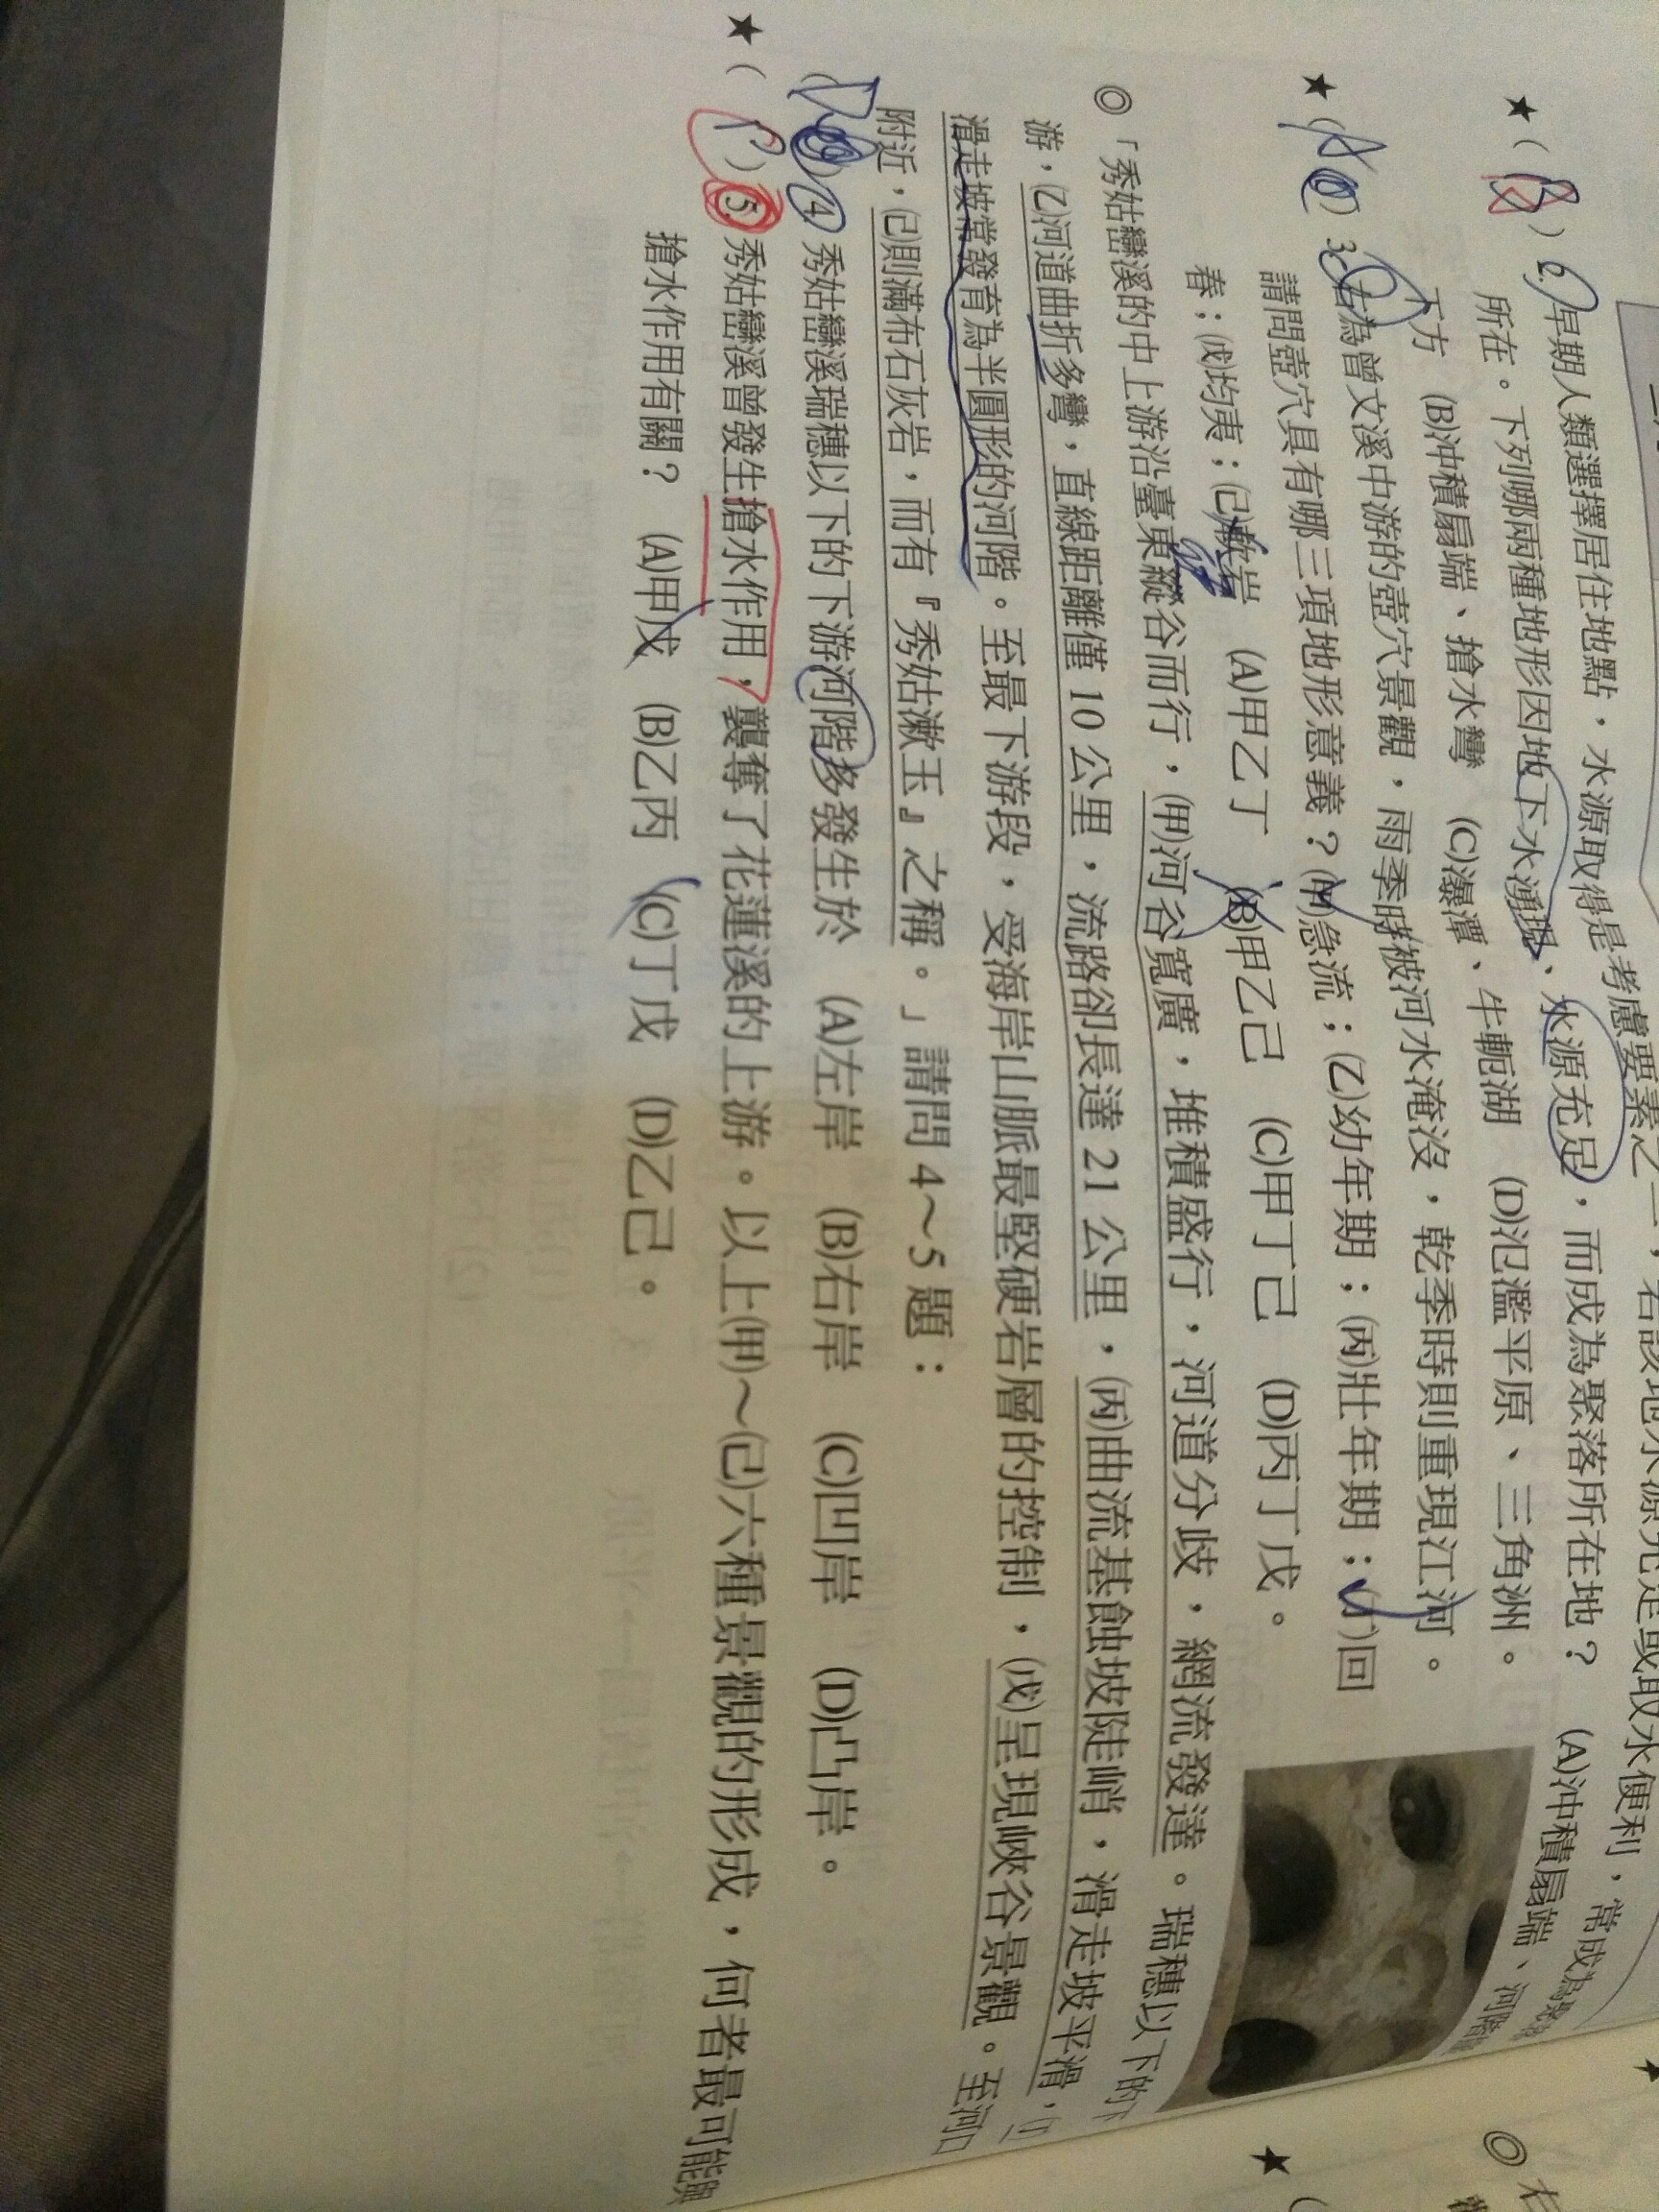 早期人類選擇居住地點，水源取得是考慮要素之一，若該地水源充足或取水便利，常成為聚落
所在。下列哪兩種地形因地下水湧現、水源充足，而成為聚落所在地？ (A)沖積扇端、河階
下方 (B)沖積扇端、搶水彎 (C)瀑潭、牛軛湖 (D)氾濫平原、三角洲。
★( A ) 3. 右為曾文溪中游的壺穴景觀，雨季時被河水淹沒，乾季時則重現江河。
請問壺穴具有哪三項地形意義？(甲)急流；(乙)幼年期；(丙)壯年期；(丁)回
春；(戊)均夷；(己)軟岩 (A)甲乙丁 (B)甲乙己 (C)甲丁己 (D)丙丁戊。
◎「秀姑巒溪的中上游沿臺東縱谷而行，(甲)河谷寬廣，堆積盛行，河道分歧，網流發達。瑞穗以下的下
游，(乙)河道曲折多彎，直線距離僅10公里，流路卻長達21公里，(丙)曲流基蝕坡陡峭，滑走坡平滑，(丁)
滑走坡常發育為半圓形的河階。至最下游段，受海岸山脈最堅硬岩層的控制，(戊)呈現峽谷景觀。至河口
附近，(己)則滿布石灰岩，而有『秀姑漱玉』之稱。」請問4～5題：
( D ) 4. 秀姑巒溪瑞穗以下的下游河階多發生於 (A)左岸 (B)右岸 (C)凹岸 (D)凸岸。
★( ) 5. 秀姑巒溪曾發生搶水作用，襲奪了花蓮溪的上游。以上(甲)～(己)六種景觀的形成，何者最可能與
搶水作用有關？ (A)甲戊 (B)乙丙 (C)丁戊 (D)乙己。